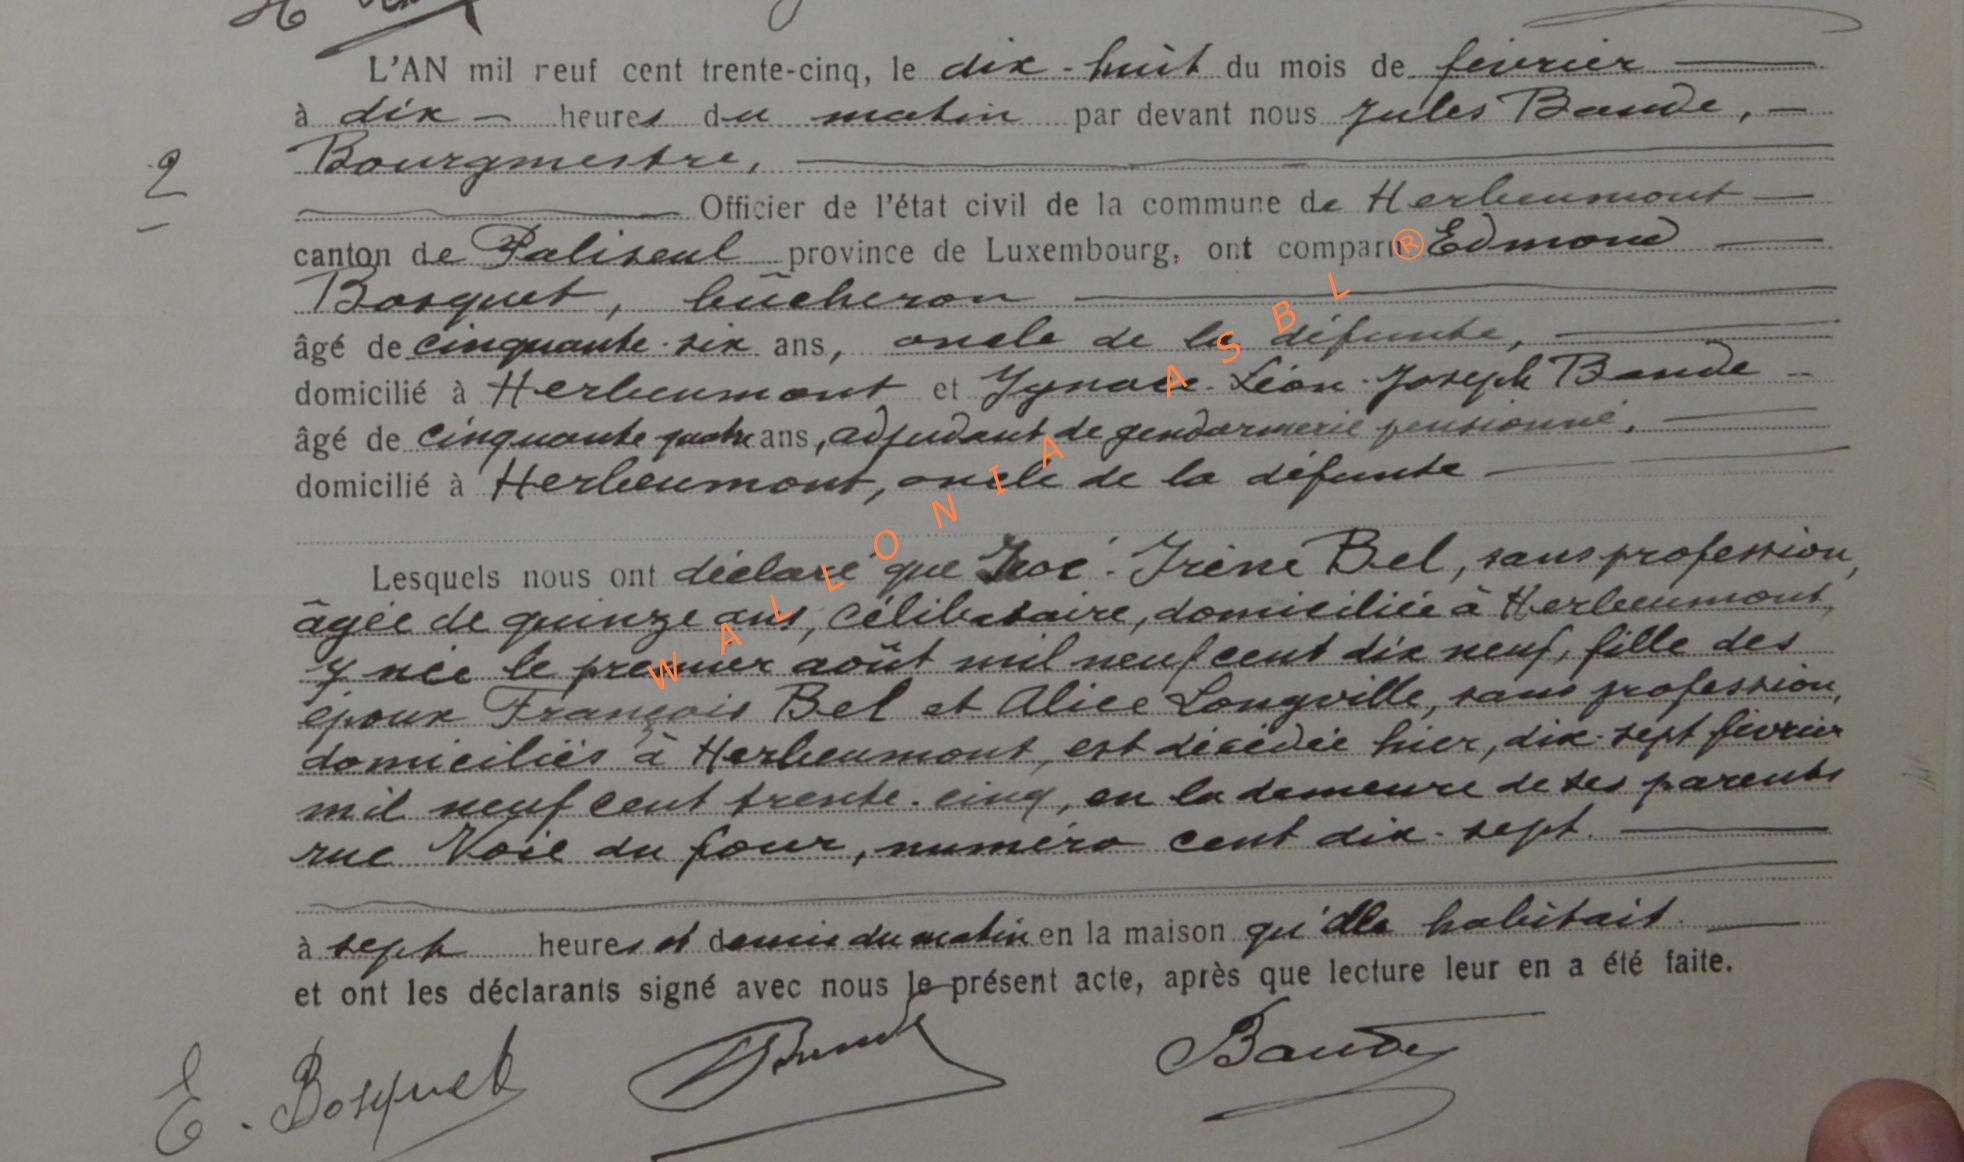 L'AN mil neuf cent trente-cinq, le dix-huit du mois de février
à dix heures du matin par devant nous Jules Baude,
Bourgmestre,
2
Officier de l'état civil de la commune de Herbeumont
canton de Paliseul province de Luxembourg, ont comparu Edmond
Bosquet, bûcheron
âgé de cinquante-six ans, oncle de la défunte,
domicilié à Herbeumont et Ignace-Léon-Joseph Baude
âgé de cinquante quatre ans, adjudant de gendarmerie pensionné,
domicilié à Herbeumont, oncle de la défunte
Lesquels nous ont déclaré que Irène Bel, sans profession,
âgée de quinze ans, célibataire, domiciliée à Herbeumont,
y née le premier août mil neuf cent dix neuf, fille des
époux François Bel et Alice Longville, sans profession,
domiciliés à Herbeumont, est décédée hier, dix-sept février
mil neuf cent trente-cinq, en la demeure de ses parents
rue Voie du four, numéro cent dix-sept.
à sept heures et demie du matin en la maison qu'elle habitait.
et ont les déclarants signé avec nous le présent acte, après que lecture leur en a été faite.
E. Bosquet Baude Baude
WALLONIA ASBL ®